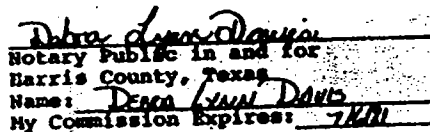 Debra Lynn Davis
Notary Public in and for
Harris County, Texas
Name: DEBRA LYNN DAVIS
My Commission Expires: